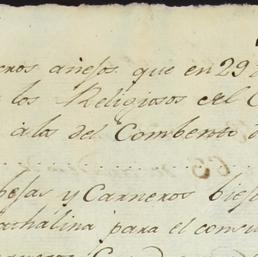 eros añejos que en 29 d
los Religiosos del C
a los del Combento d
besas y Carneros biejo
achalina para el consu